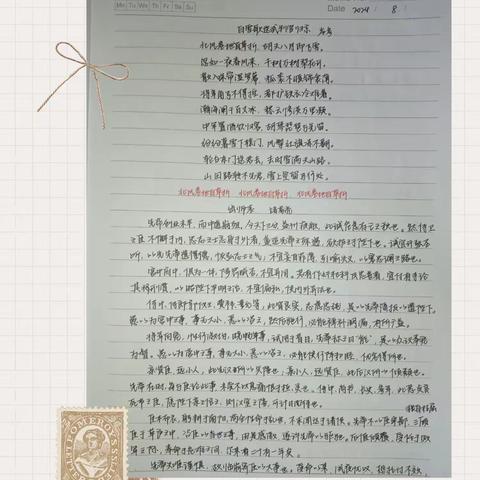 Mo Tu We Th Fr Sa Su
Date 2024 / 8 /
白雪歌送武判官归京 岑参
北风卷地白草折，胡天八月即飞雪。
忽如一夜春风来，千树万树梨花开。
散入珠帘湿罗幕，狐裘不暖锦衾薄。
将军角弓不得控，都护铁衣冷难着。
瀚海阑干百丈冰，愁云惨淡万里凝。
中军置酒饮归客，胡琴琵琶与羌笛。
纷纷暮雪下辕门，风掣红旗冻不翻。
轮台东门送君去，去时雪满天山路。
山回路转不见君，雪上空留马行处。
北风卷地白草折 北风卷地白草折，北风卷地白草折
出师表 诸葛亮
先帝创业未半，而中道崩殂，今天下三分，益州疲敝，此诚危急存亡之秋也。然侍卫
之臣不懈于内，忠志之士忘身于外者，盖追先帝之殊遇，欲报之于陛下也。诚宜开张圣
听，以光先帝遗德，恢弘志士之气，不宜妄自菲薄，引喻失义，以塞忠谏之路也。
宫中府中，俱为一体，陟罚臧否，不宜异同。若有作奸犯科及为忠善者，宜付有司论
其刑赏，以昭陛下平明之治，不宜偏私，使内外异法也。
侍中、侍郎郭攸之、费祎、董允等，此皆良实，志虑忠纯，是以先帝简拔以遗陛下。
愚以为宫中之事，事无大小，悉以咨之，然后施行，必能裨补阙漏，有所广益。
将军向宠，性行淑均，晓畅军事，试用于昔日，先帝称之曰“能”，是以众议举宠
为督。愚以为营中之事，事无大小，悉以咨之，必能使行阵和睦，优劣得所也。
亲贤臣，远小人，此先汉所以兴隆也；亲小人，远贤臣，此后汉所以倾颓也。
先帝在时，每与臣论此事，未尝不叹息痛恨于桓、灵也。侍中、尚书、长史、参军，此悉贞良
死节之臣，陛下亲之信之，则汉室之隆，计日而待也。
臣本布衣，躬耕于南阳，苟全性命于乱世，不求闻达于诸侯。先帝不以臣卑鄙，三顾
臣于草庐之中，咨臣以当世之事，由是感激，遂许先帝以驱驰。后值倾覆，受任于败
军之际，奉命于危难之间，尔来二十有一年矣。
先帝知臣谨慎，故临崩寄臣以大事也。受命以来，夙夜忧叹，恐托付不效，